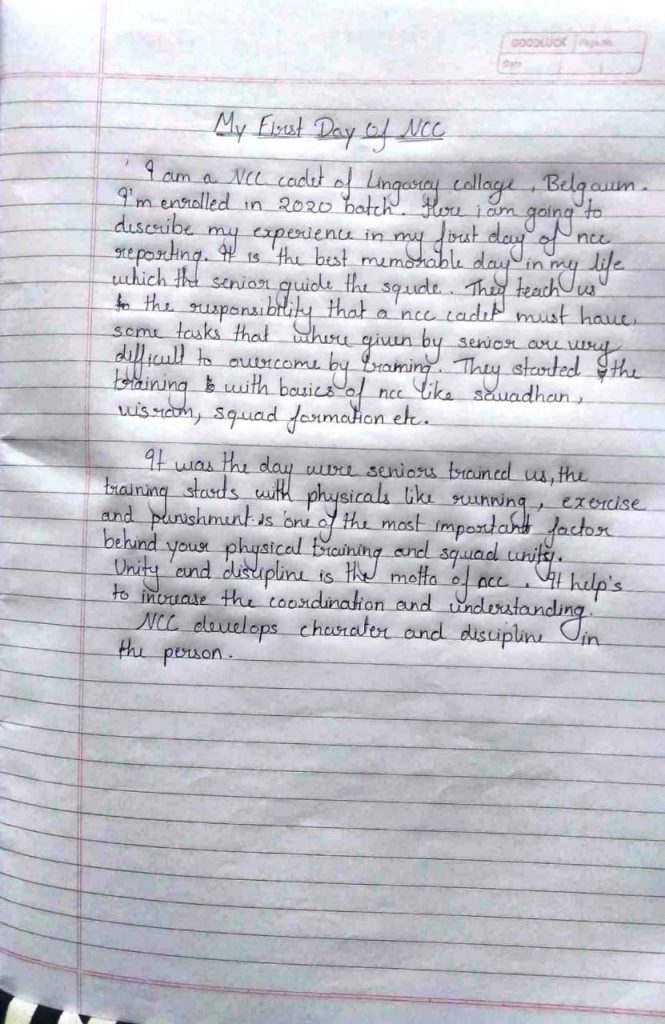 GOODLUCK Page No.
Date
My First Day of NCC
I am a NCC cadet of Lingaraj collage, Belgaum.
I'm enrolled in 2020 batch. Here i am going to
describe my experience in my first day of ncc
reporting. It is the best memorable day in my life
which the senior guide the squde. They teach us
to the responsibility that a ncc cadet must have,
some tasks that where given by senior are very
difficult to overcome by traming. They started the
training with basics of ncc like savadhan,
visram, squad formation etc.
It was the day were seniors trained us, the
training starts with physicals like running, exercise
and punishment is one of the most important factor
behind your physical training and squad unity.
Unity and discipline is the motto of ncc. It help's
to increase the coordination and understanding.
NCC develops charater and discipline in
the person.